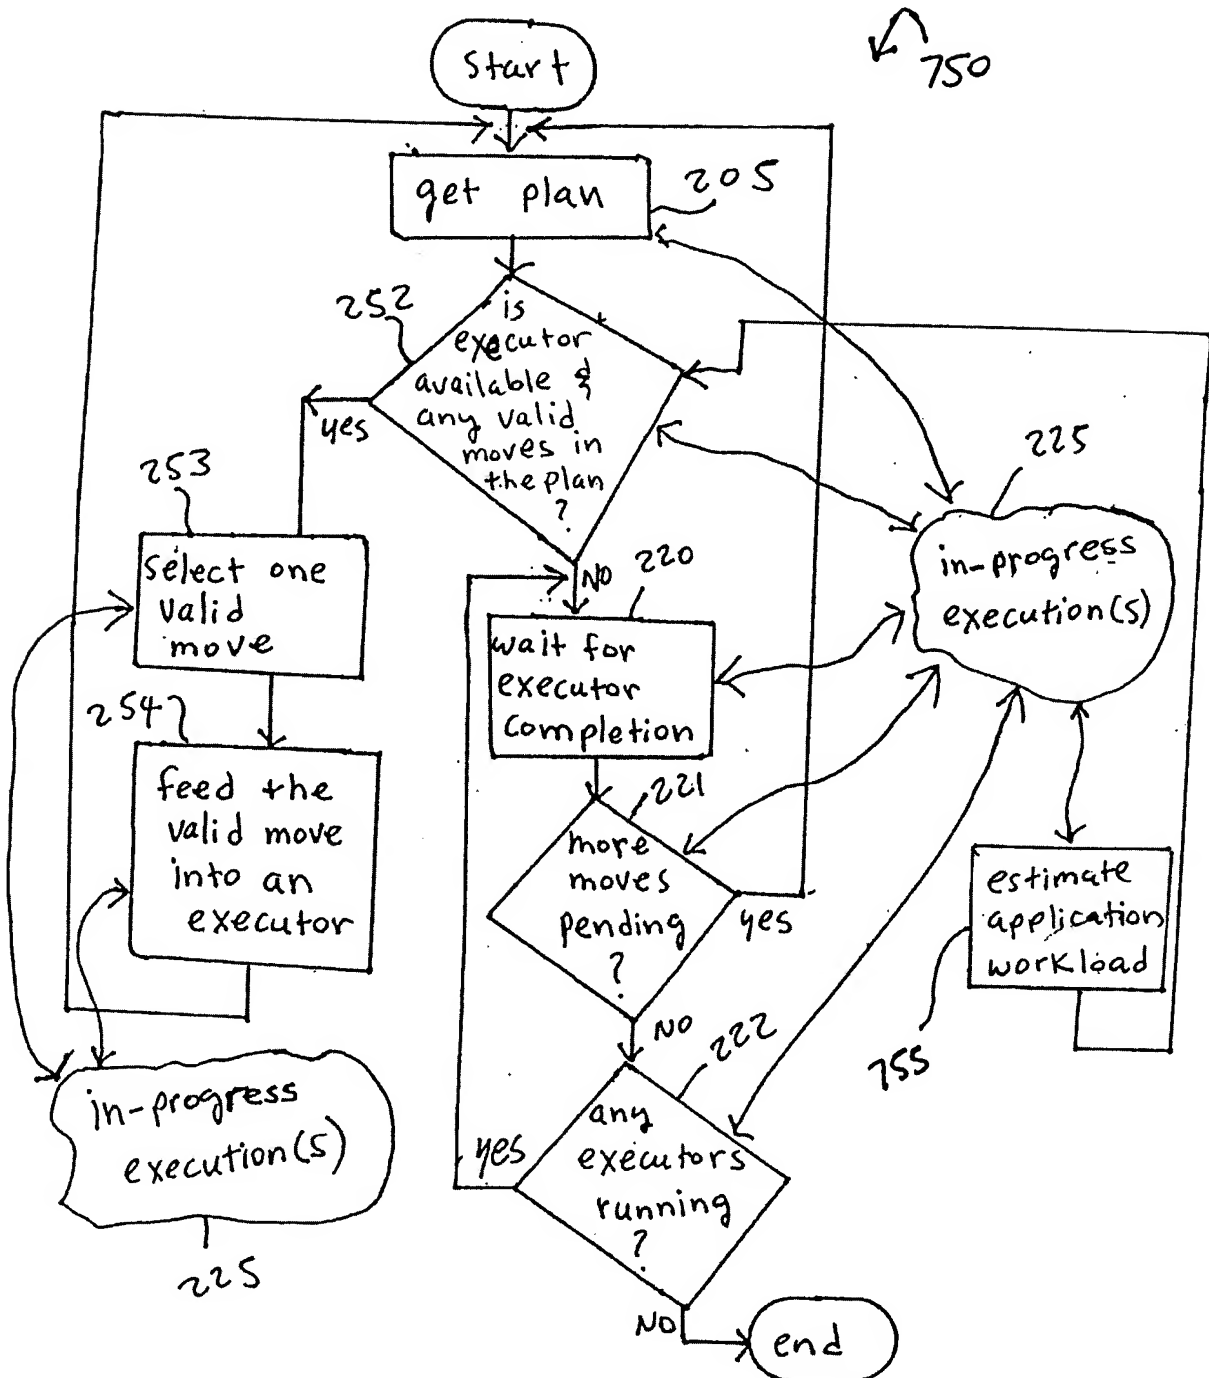 start
750
get plan
205
252
is
executor
available &
any valid
moves in
the plan
?
yes
NO
253
select one
valid
move
254
feed the
valid move
into an
executor
in-progress
execution(s)
225
220
wait for
executor
completion
221
more
moves
pending
?
yes
NO
222
any
executors
running
?
yes
NO
end
225
in-progress
execution(s)
estimate
application
workload
755